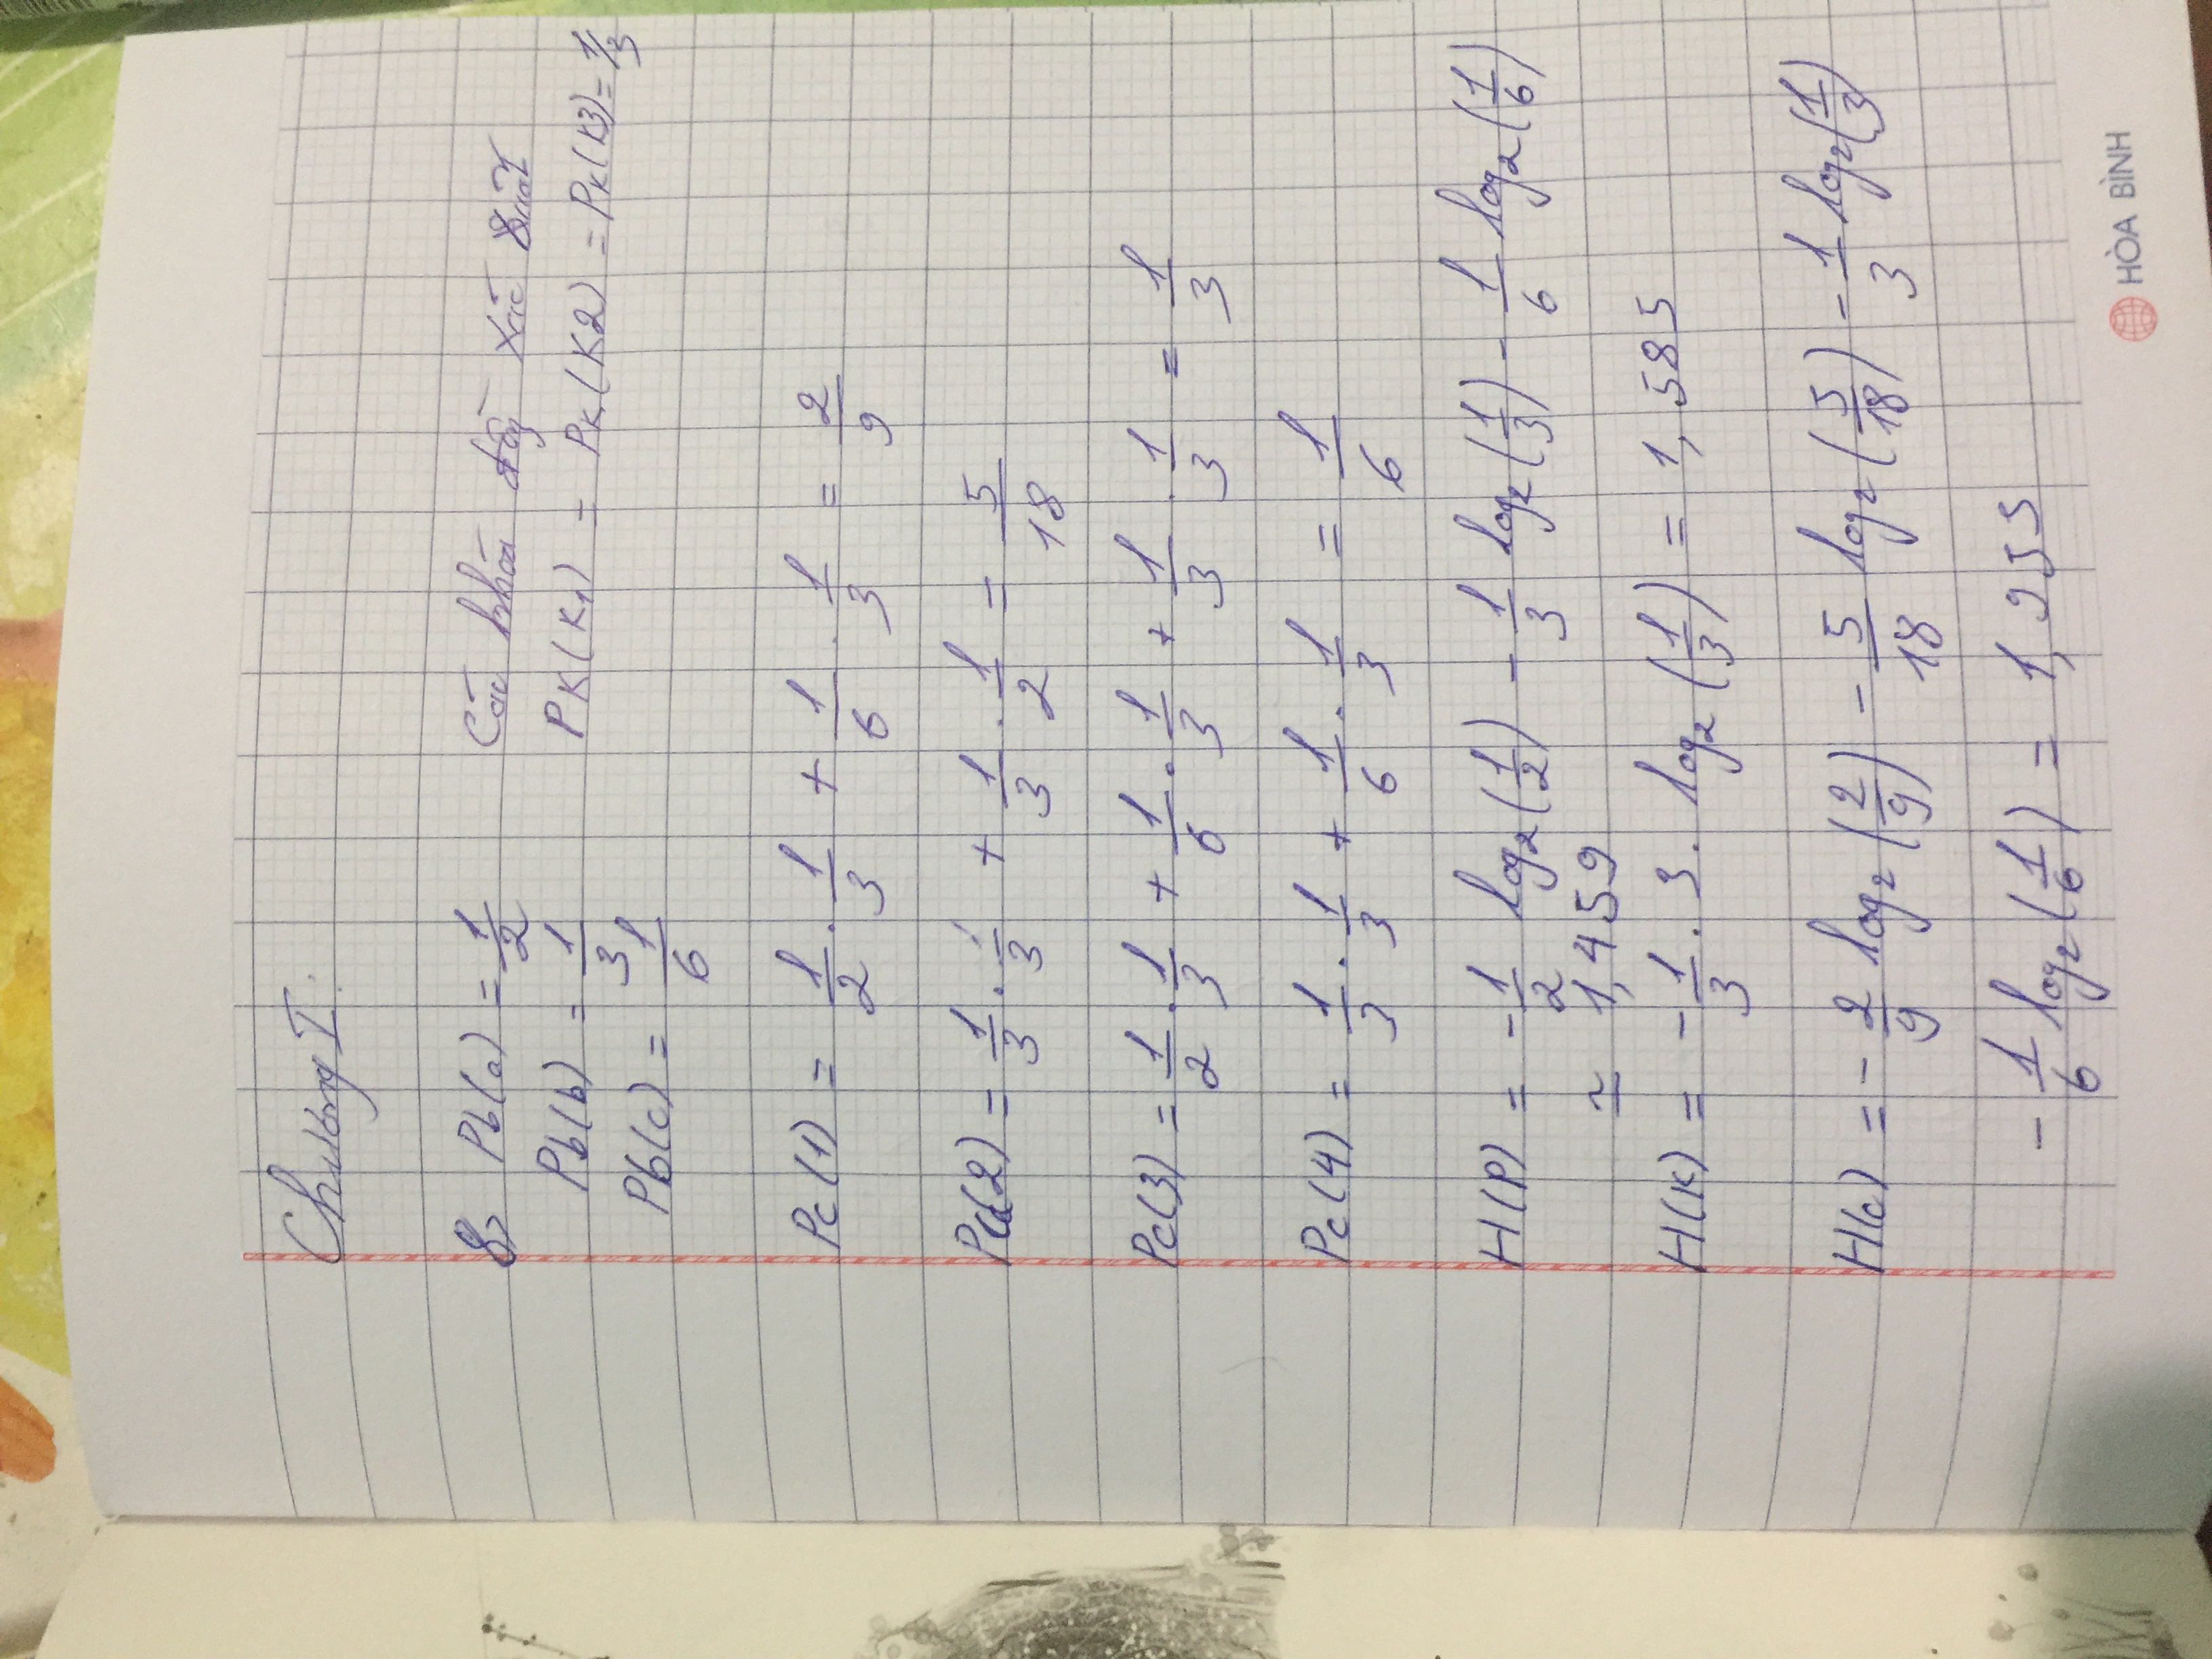 Chương I:
8> Pb(a) = 1/2 Các khóa đồng xác suất
Pb(b) = 1/3 PK(K1) = PK(K2) = PK(K3) = 1/3
Pb(c) = 1/6
Pc(1) = 1/2 . 1/3 + 1/6 . 1/3 = 2/9
Pc(2) = 1/3 . 1/3 + 1/3 . 1/2 = 5/18
Pc(3) = 1/2 . 1/3 + 1/6 . 1/3 + 1/3 . 1/3 = 1/3
Pc(4) = 1/3 . 1/3 + 1/6 . 1/3 = 1/6
H(P) = -1/2 log₂(1/2) - 1/3 log₂(1/3) - 1/6 log₂(1/6)
≃ 1,459
H(K) = -1/3 . 3 . log₂(1/3) = 1,585
H(c) = - 2/9 log₂(2/9) - 5/18 log₂(5/18) - 1/3 log₂(1/3)
- 1/6 log₂(1/6) = 1,955
HÒA BÌNH